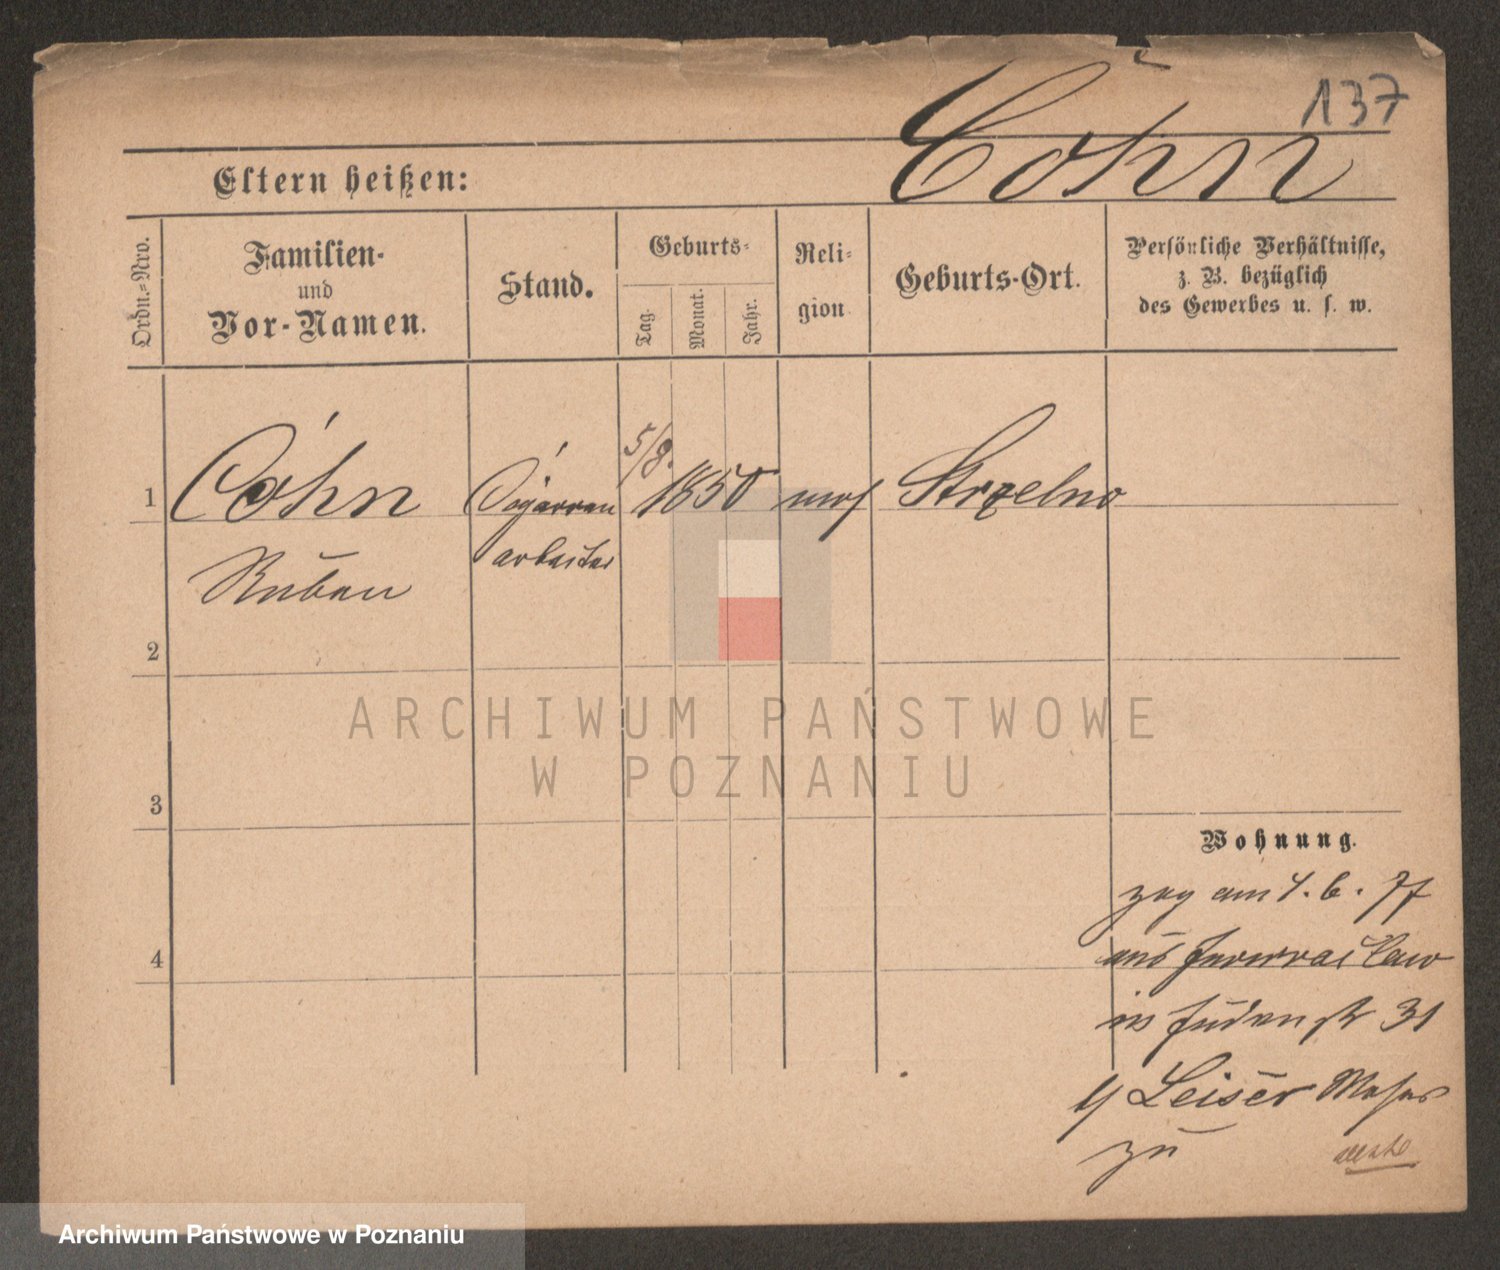 137
Cohn
Eltern heißen:
Ordn.=Nro.
Familien-
und
Vor-Namen.
Stand.
Geburts=
Tag.
Monat.
Jahr.
Reli-
gion
Geburts-Ort.
Persönliche Verhältnisse,
z. B. bezüglich
des Gewerbes u. s. w.
1 Cohn Cigarren 5/8. 1850 mos Strzelno
Ruben arbeiter
2
3
4
Wohnung.
zog am 4. 6. 77
aus Inowraclaw
in Judenstr 31
b/ Leiser Moses
zu
ARCHIWUM PAŃSTWOWE
W POZNANIU
Archiwum Państwowe w Poznaniu